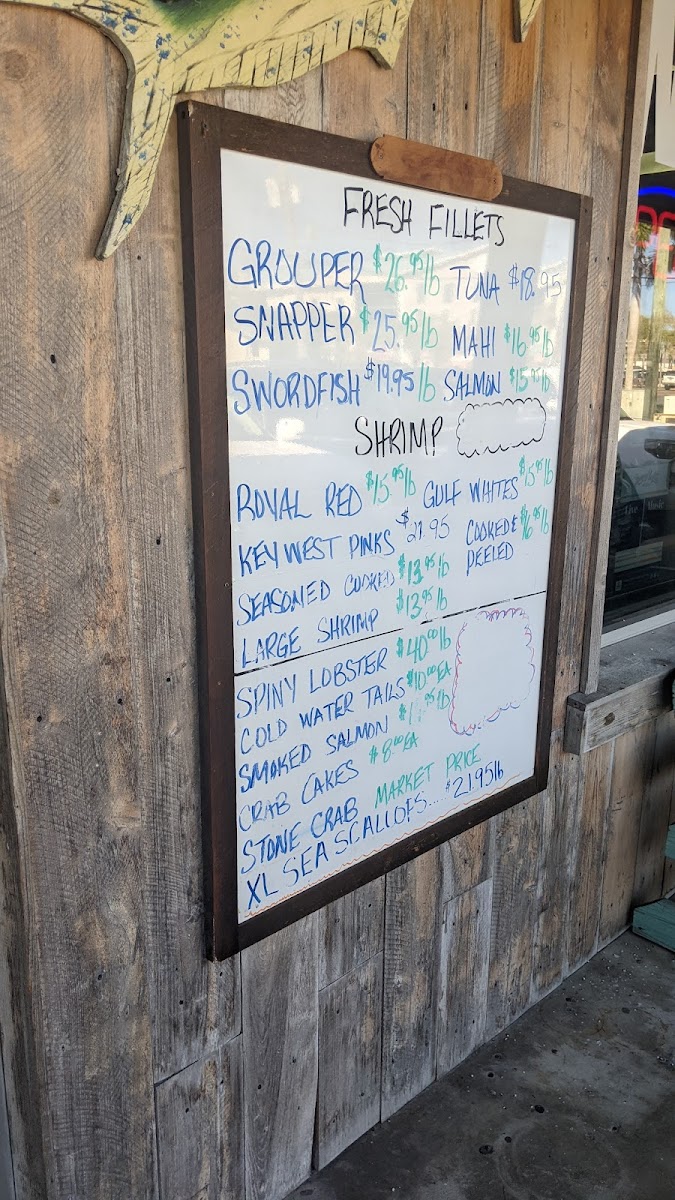 FRESH FILLETS
GROUPER $26.95 lb TUNA $18.95
SNAPPER $25.95 lb MAHI $16.95 lb
SWORDFISH $19.95 lb SALMON $15.95 lb
SHRIMP
ROYAL RED $15.95 lb GULF WHITES $15.95 lb
KEY WEST PINKS $21.95 COOKED & PEELED $16.95 lb
SEASONED COOKED $13.95 lb
LARGE SHRIMP $13.95 lb
SPINY LOBSTER $40.00 lb
COLD WATER TAILS $10.00 EA
SMOKED SALMON
CRAB CAKES $8.00 EA
STONE CRAB MARKET PRICE
XL SEA SCALLOPS... $21.95 lb